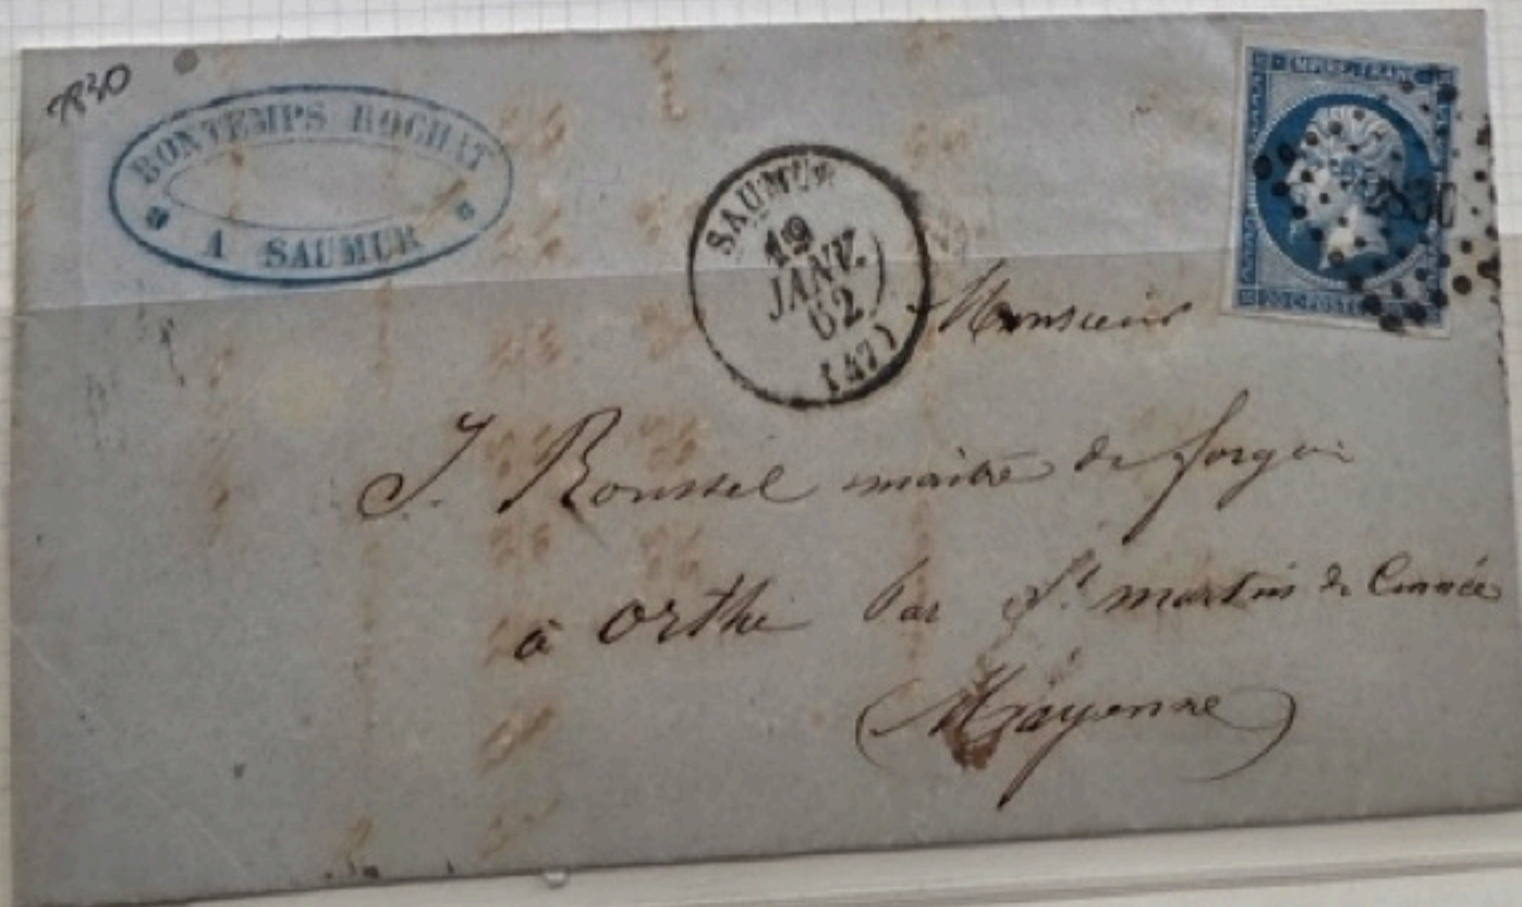 2830
BONTEMPS ROCHAT
A SAUMUR
SAUMUR
12
JANV.
62
(47)
EMPIRE FRANC
2830
20 C POSTE
Monsieur
J. Roussel maître de forges
à Orthe par St. martin de Connée
(Mayenne)